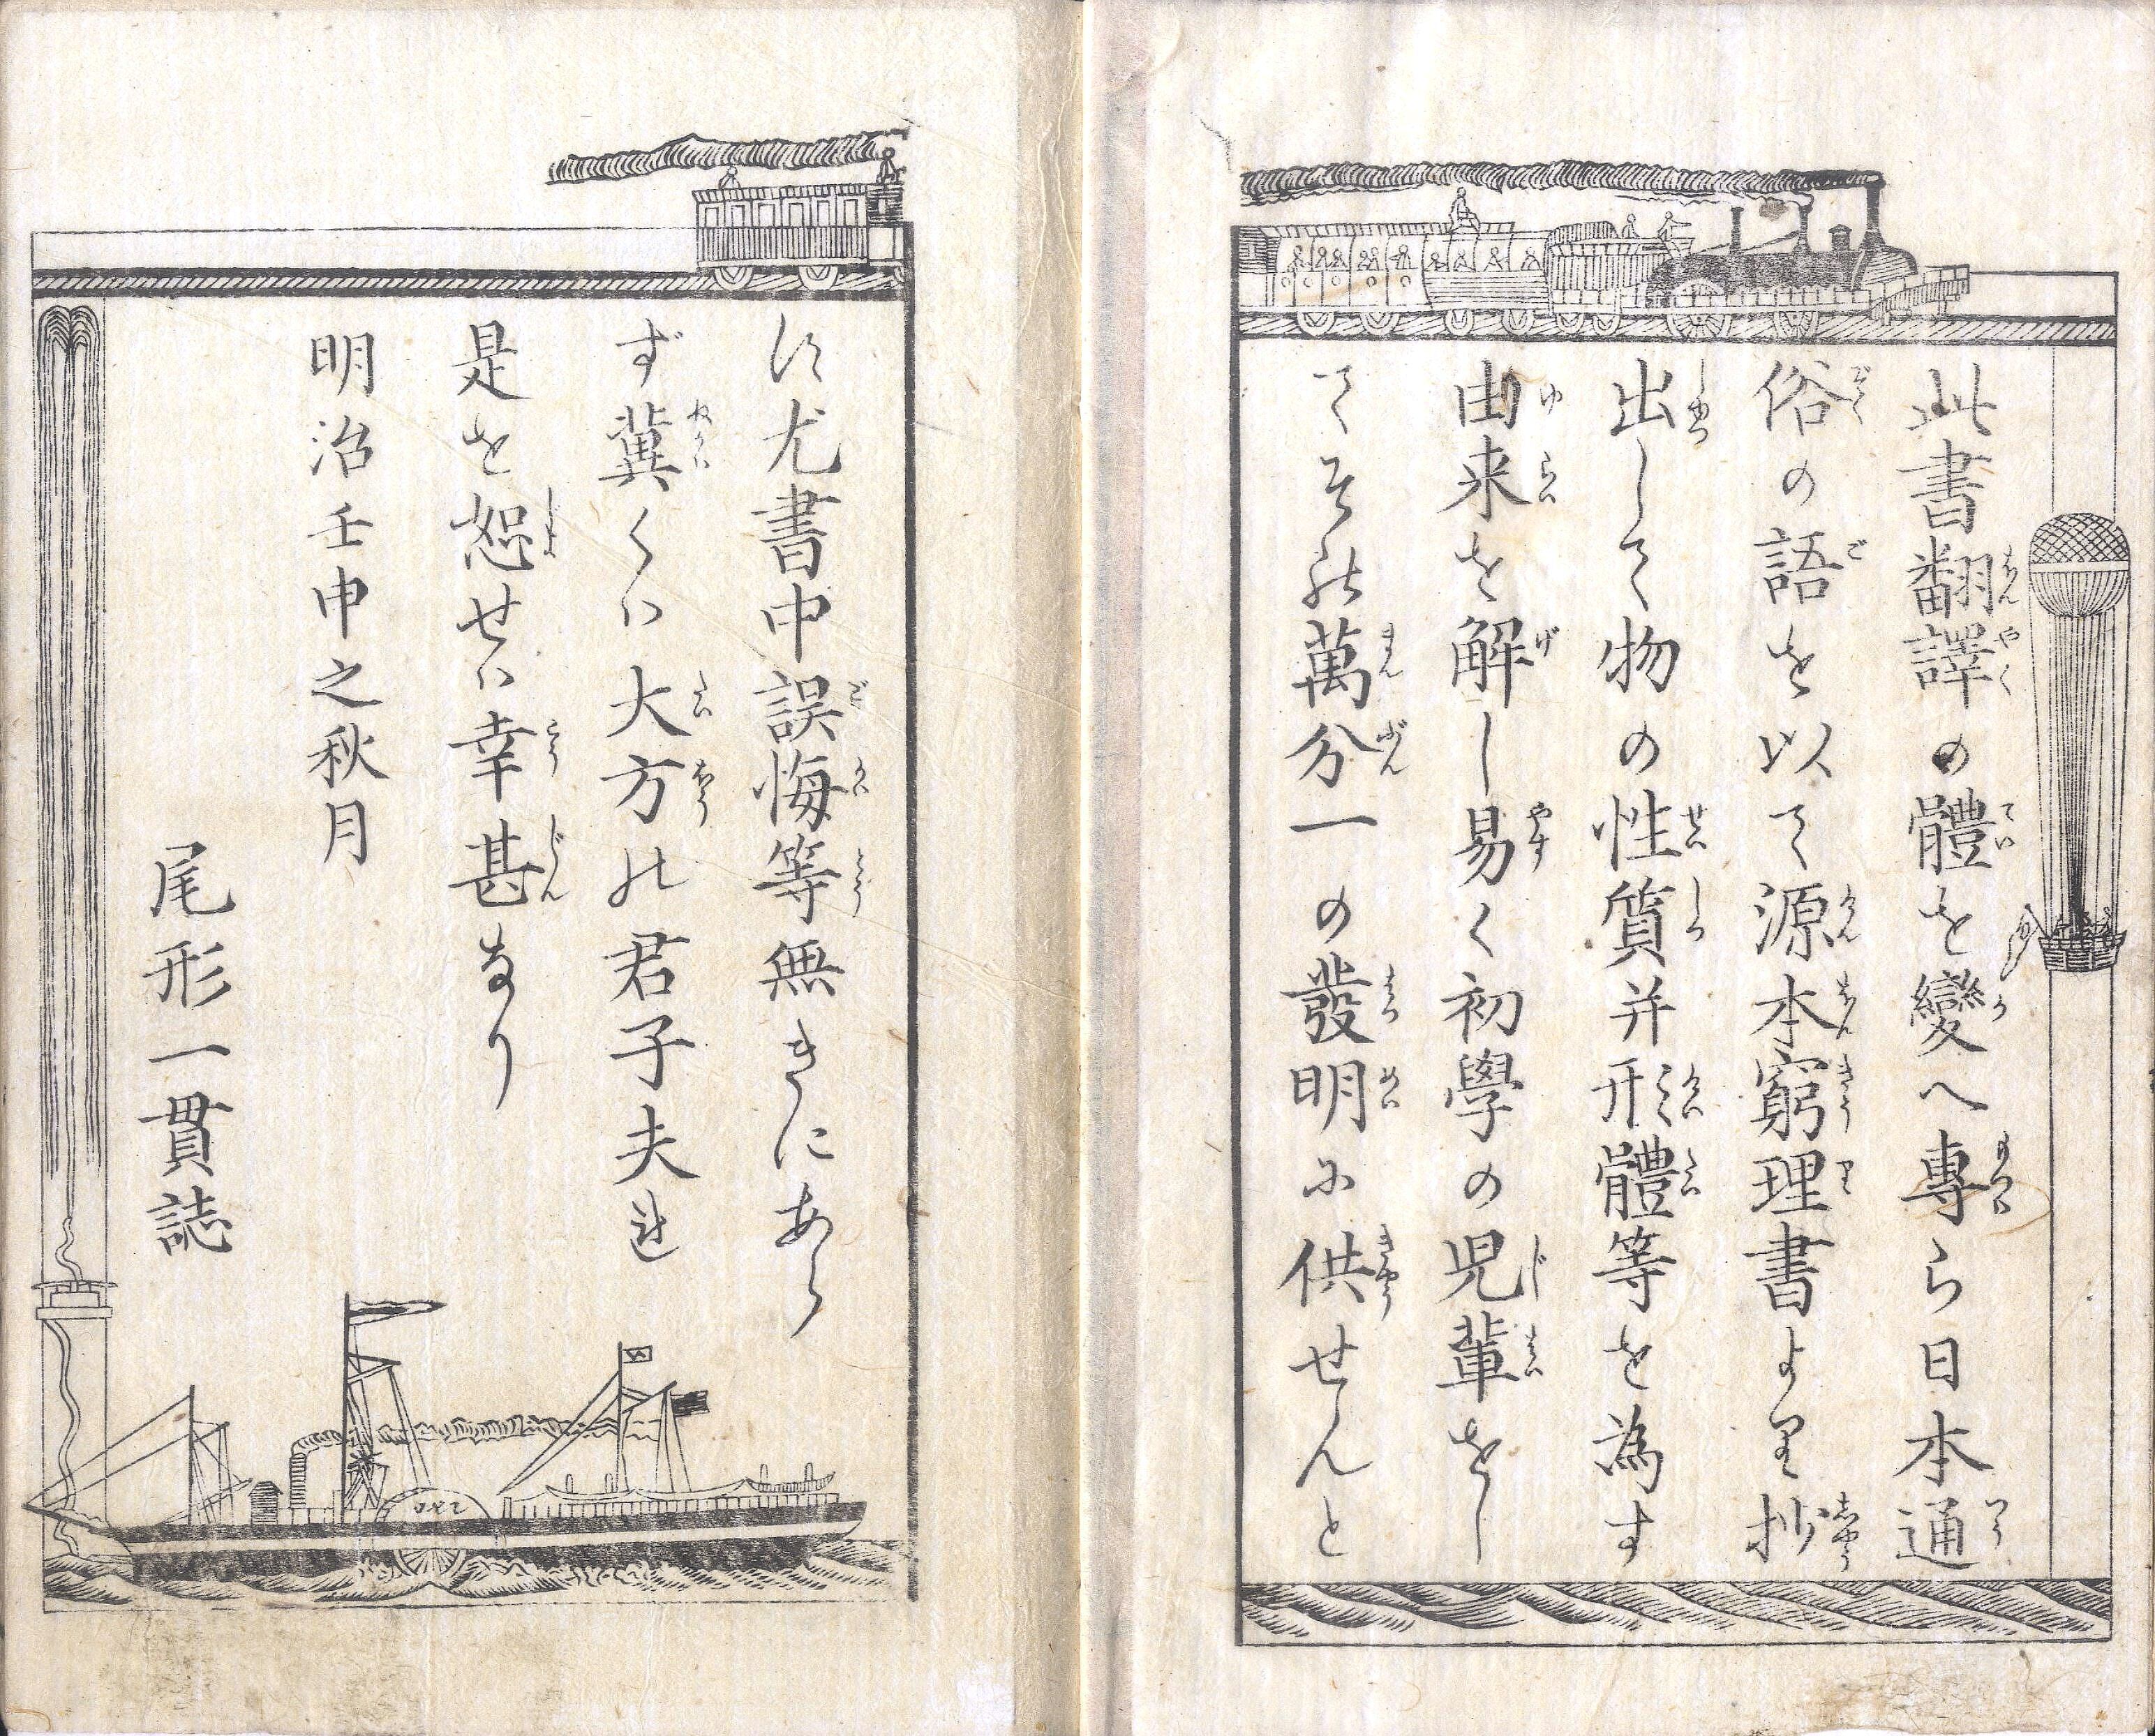 此書翻譯の體を變へ專ら日本通
俗の語を以て源本窮理書より抄
出して物の性質并形體等を為す
由来を解し易く初學の児輩をし
てその萬分一の發明に供せんと
す尤書中誤悔等無きにあら
ず冀くは大方の君子夫れ
是を恕せは幸甚なり
明治壬申之秋月
尾形一貫誌